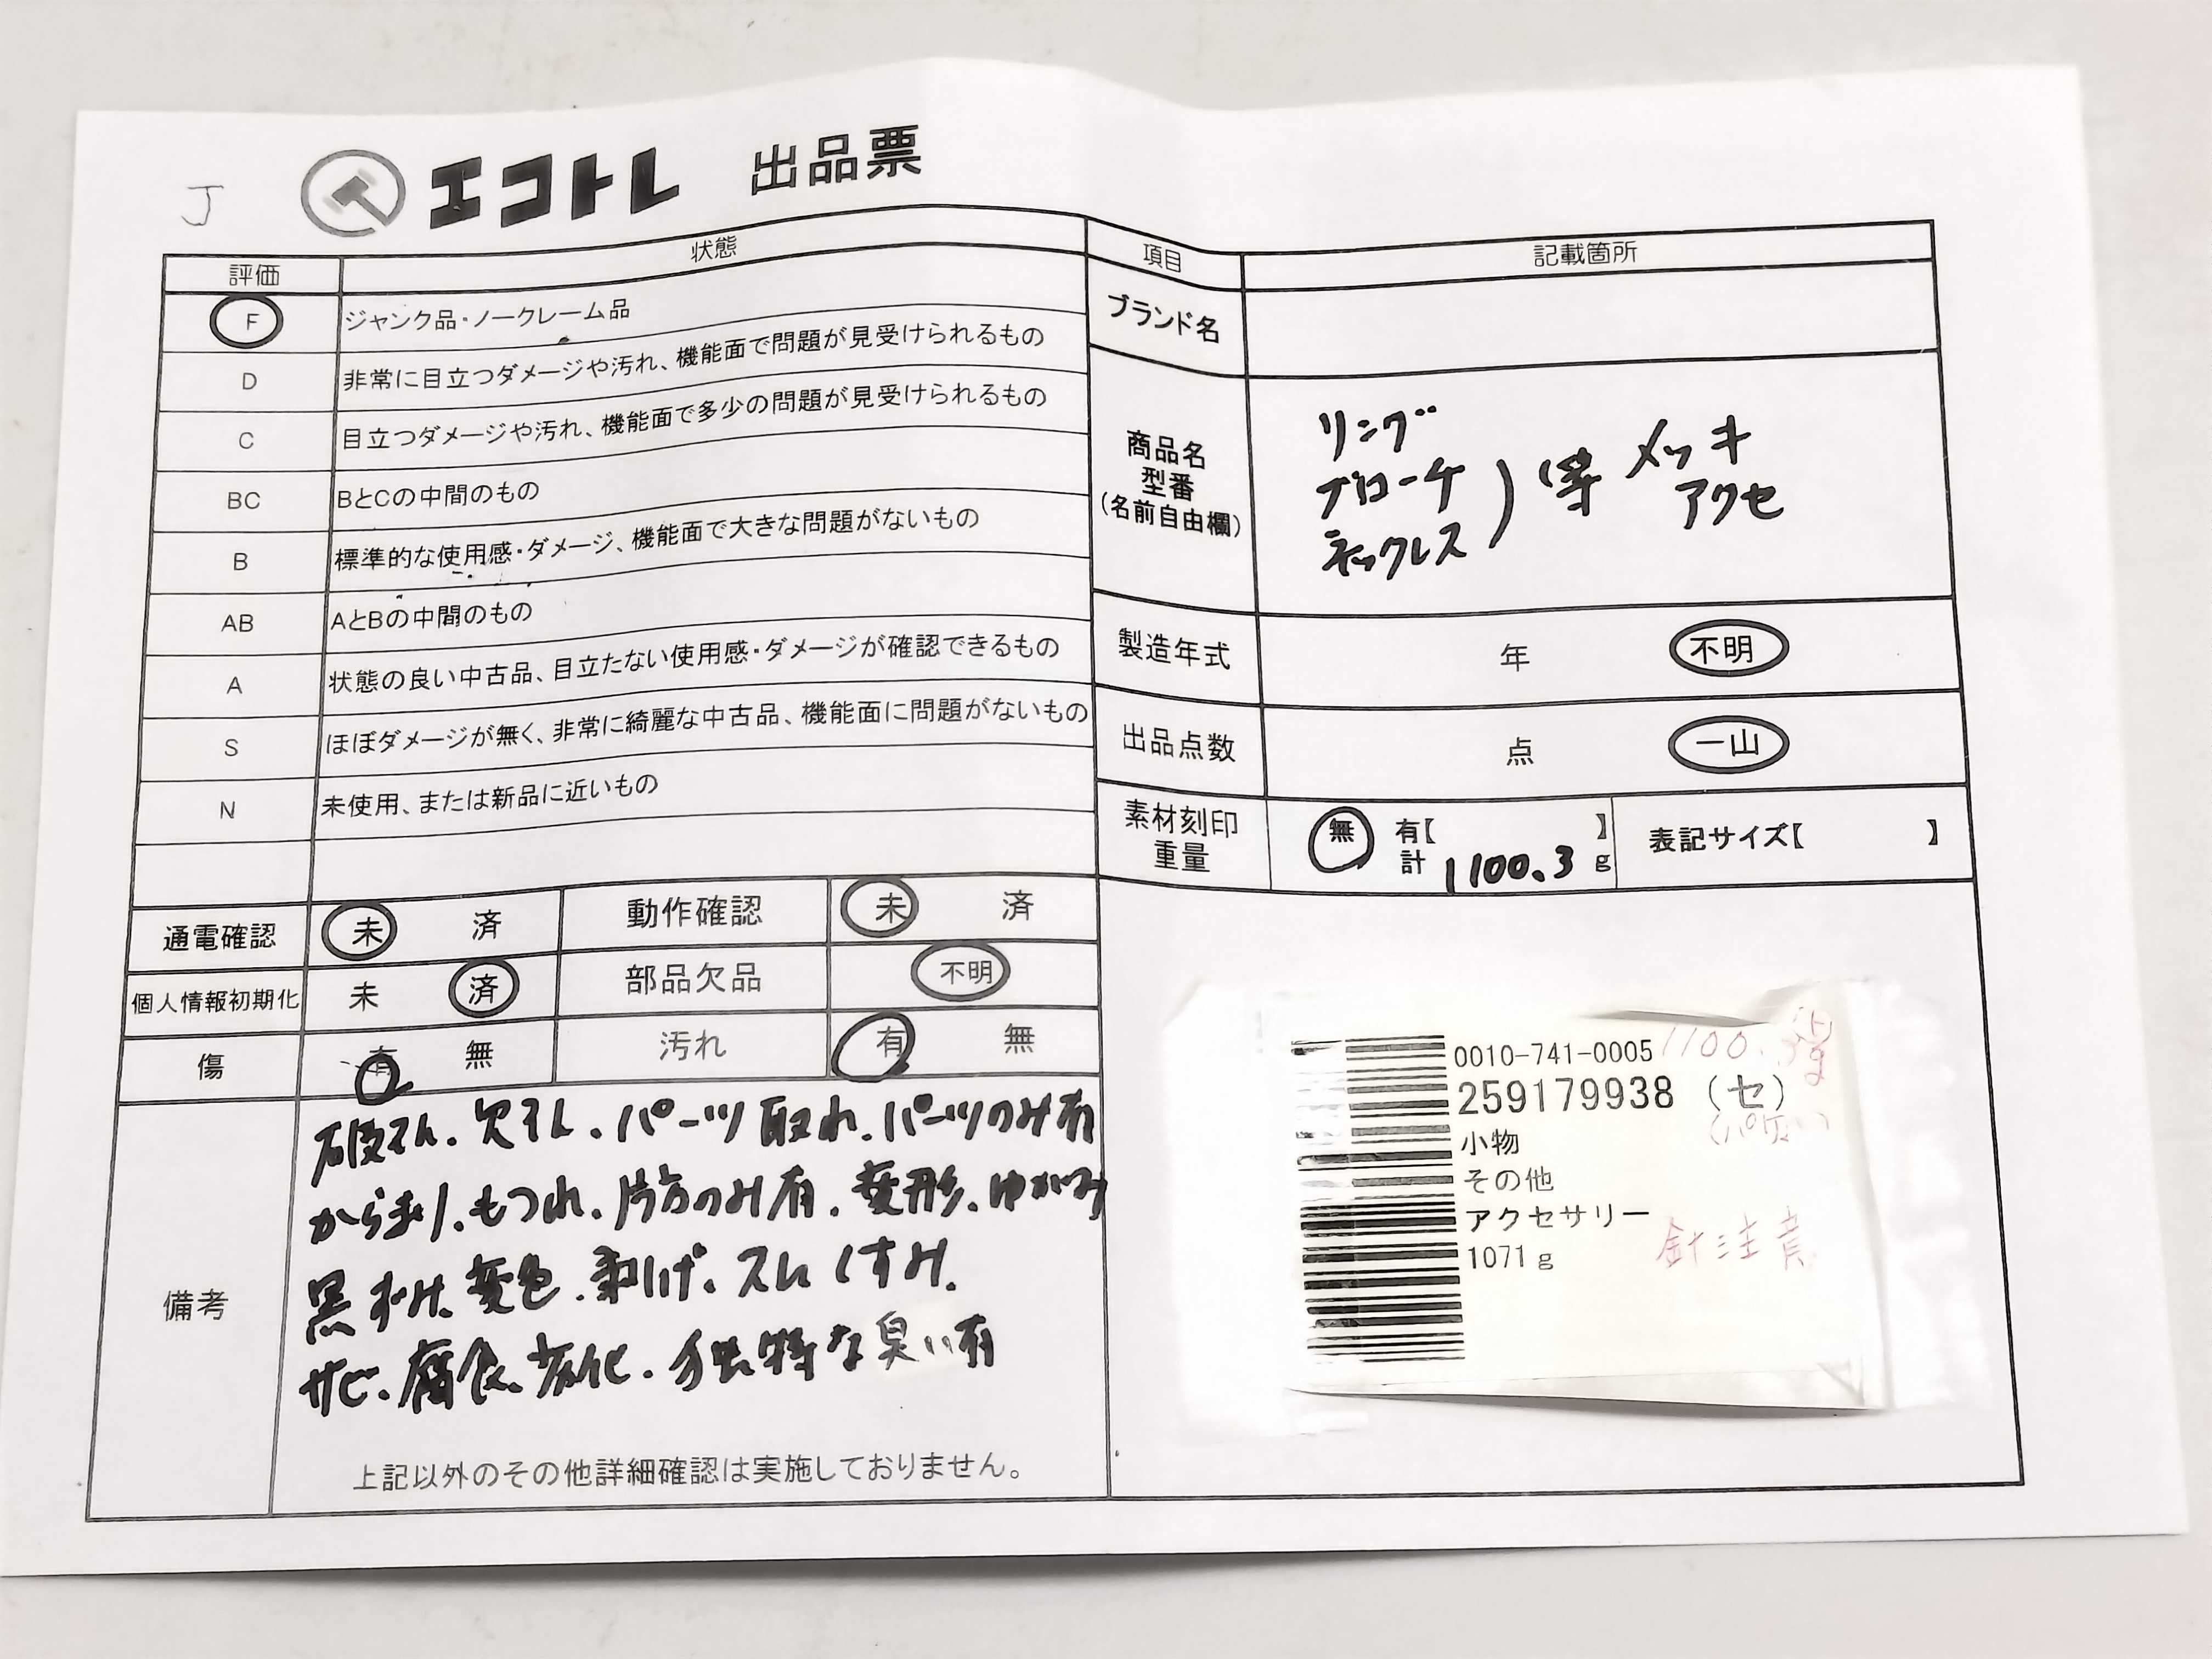 J
エコトレ 出品票
評価 状態
F ジャンク品・ノークレーム品
D 非常に目立つダメージや汚れ、機能面で問題が見受けられるもの
C 目立つダメージや汚れ、機能面で多少の問題が見受けられるもの
BC BとCの中間のもの
B 標準的な使用感・ダメージ、機能面で大きな問題がないもの
AB AとBの中間のもの
A 状態の良い中古品、目立たない使用感・ダメージが確認できるもの
S ほぼダメージが無く、非常に綺麗な中古品、機能面に問題がないもの
N 未使用、または新品に近いもの
通電確認 未 済 動作確認 未 済
個人情報初期化 未 済 部品欠品 不明
傷 有 無 汚れ 有 無
備考
破れ、欠け、パーツ取れ、パーツのみ有
からまり、もつれ、片方のみ有、変形、ゆがみ
黒ずみ、変色、剥げ、スレ、くすみ、
サビ、腐食、劣化、独特な臭い有
上記以外のその他詳細確認は実施しておりません。
項目 記載箇所
ブランド名
商品名
型番
(名前自由欄)
リング
ブローチ
ネックレス
)等 メッキ
アクセ
製造年式 年 不明
出品点数 点 一山
素材刻印
重量
無 有【 】
計 1100.3 g
表記サイズ【 】
0010-741-0005
259179938 (セ)
小物
その他
アクセサリー
1071g
針注意